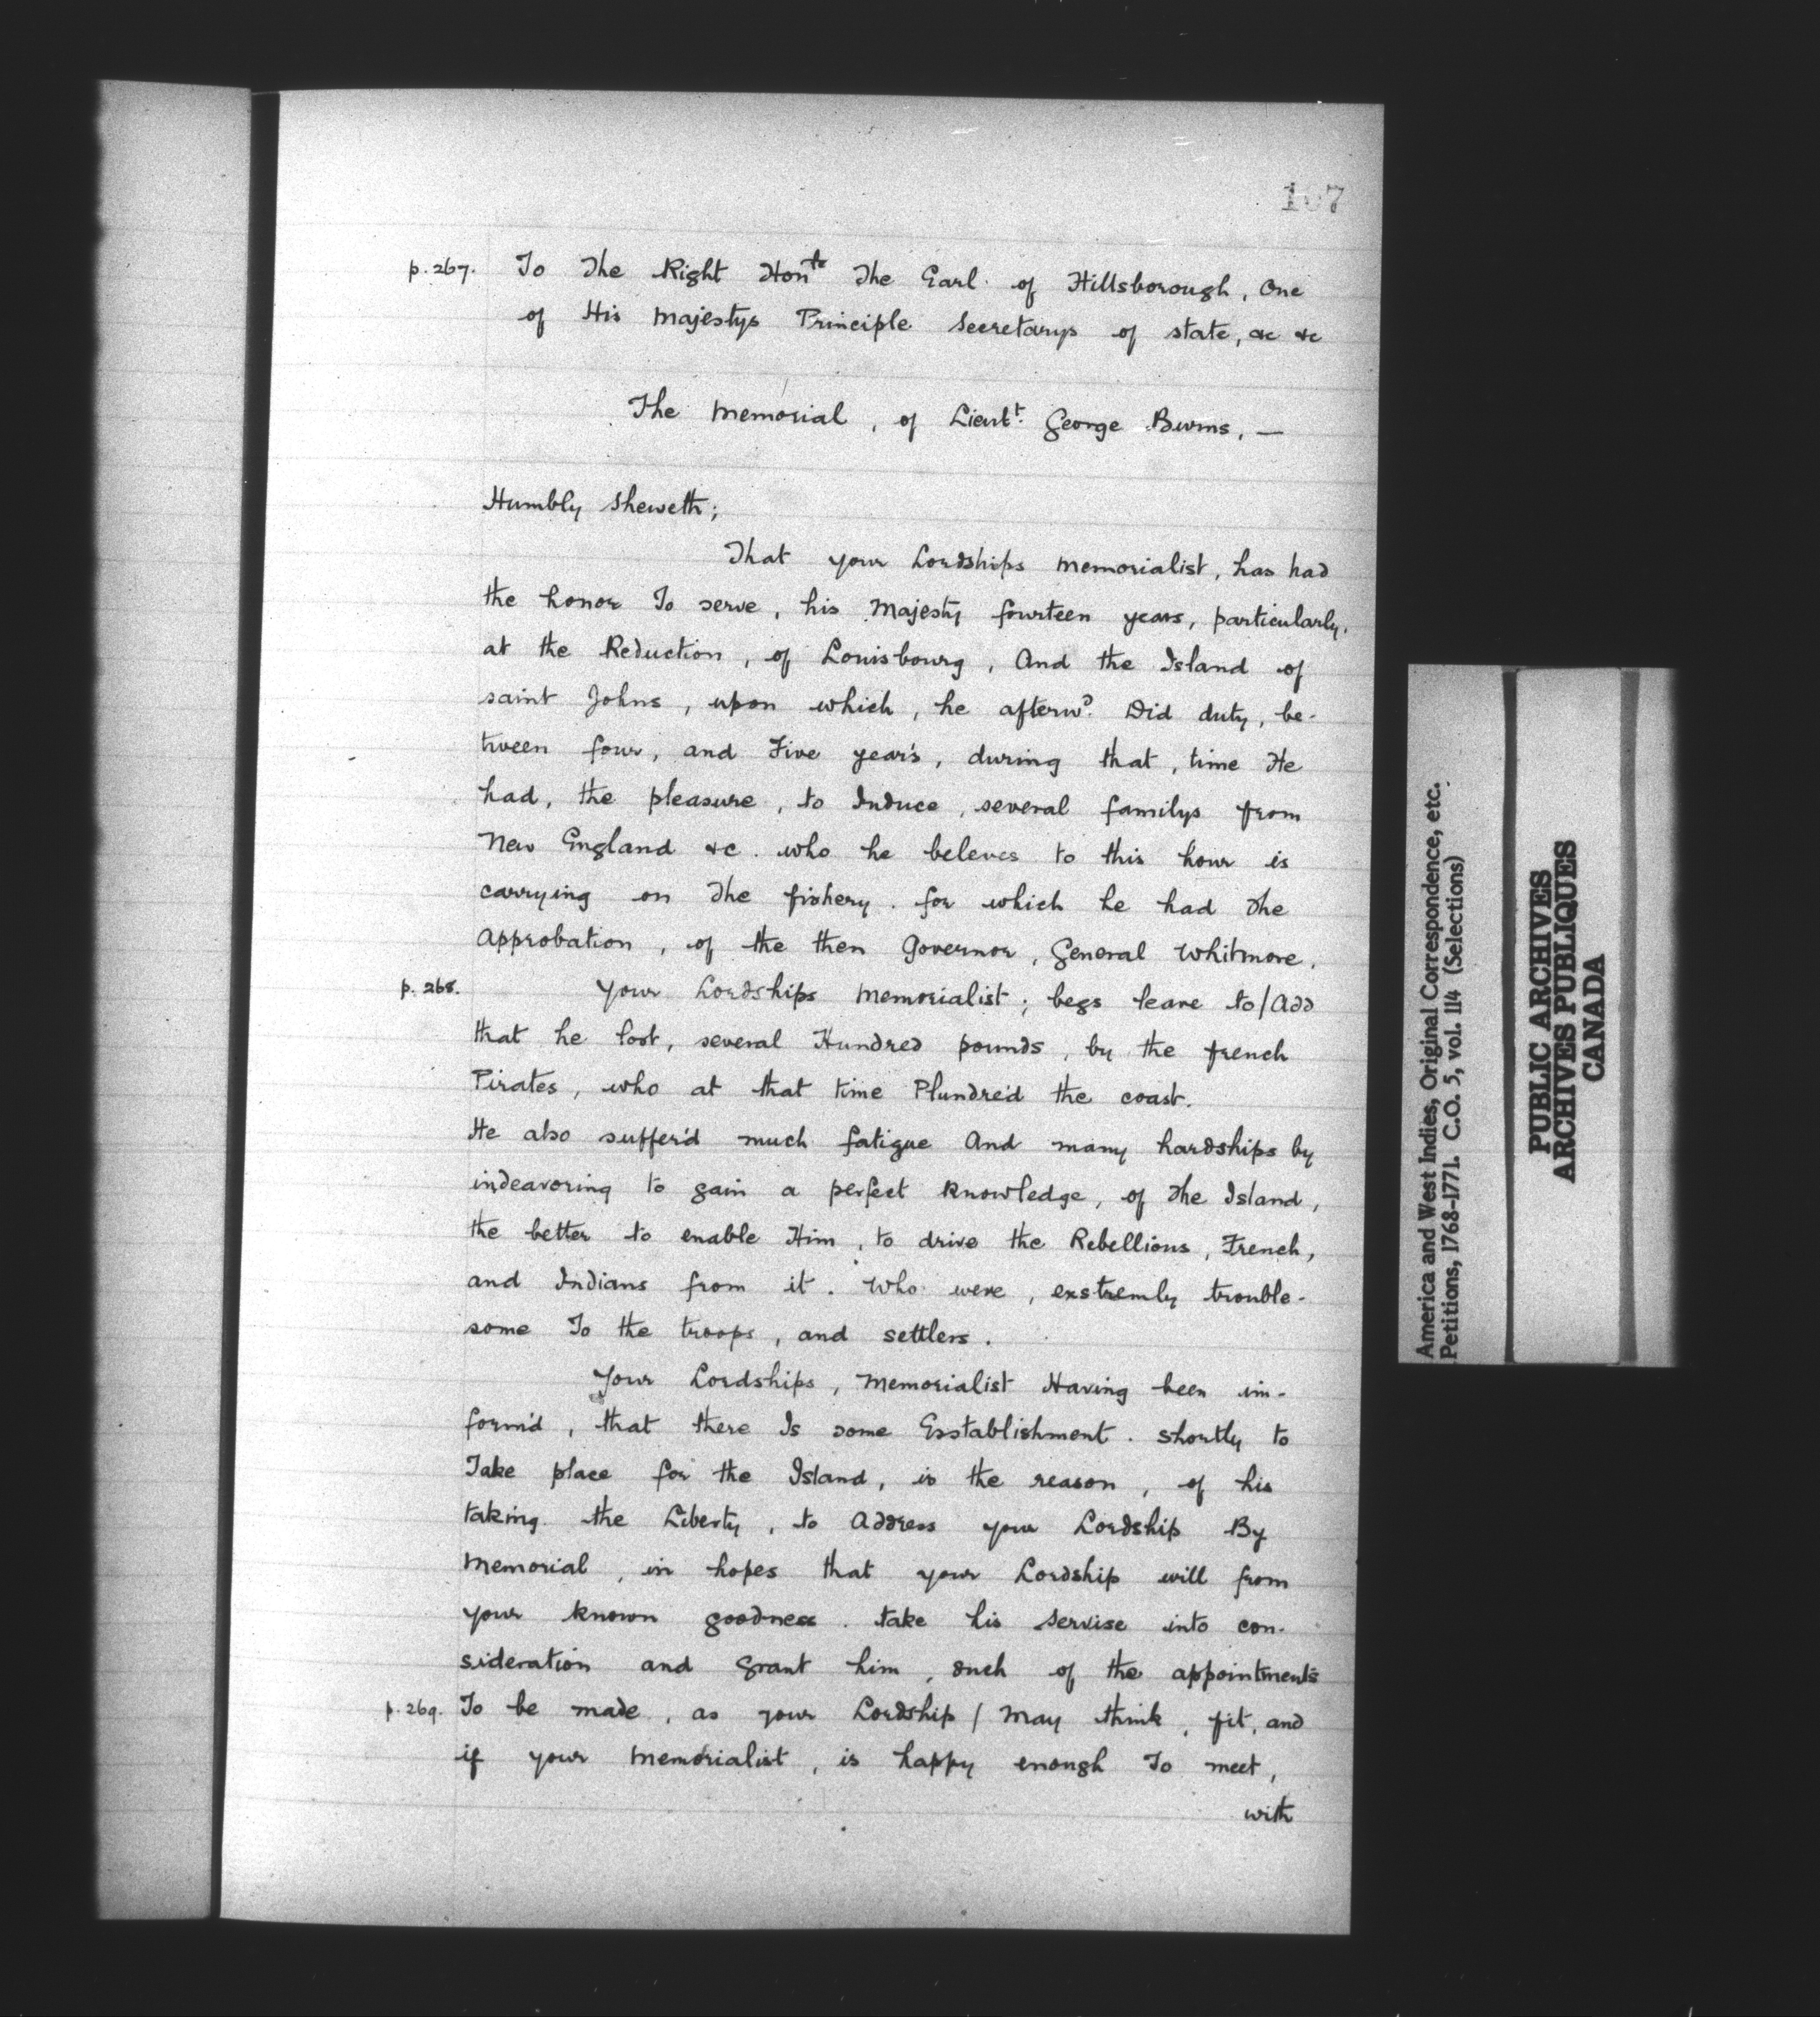 107
p. 267. To The Right Honble The Earl of Hillsborough, One
of His Majestys Principle Secretarys of state, &c &c
The Memorial, of Lieutt. George Burns, —
Humbly Sheweth;
That your Lordships memorialist, has had
the honor To serve, his Majesty fourteen years, particularly,
at the Reduction, of Louisbourg, And the Island of
saint Johns, upon which, he afterwd. Did duty, be-
tween four, and Five year's, during that, time He
had, the pleasure, to Induce, several familys from
New England &c. who he beleves to this hour is
carrying on The fishery. for which he had The
Approbation, of the then Governor, General Whitmore.
p. 268. Your Lordships memorialist; begs leave to/Add
that he lost, several Hundred pounds, by the french
Pirates, who at that time Plundre'd the coast.
He also suffer'd much fatigue And many hardships by
indeavoring to gain a perfect knowledge, of The Island,
the better to enable Him, to drive the Rebellions, French,
and Indians from it. Who were, exstremly trouble-
some To the troops, and settlers.
Your Lordships, Memorialist Having been in-
form'd, that there Is some Esstablishment. shortly to
Take place for the Island, is the reason, of his
taking the Liberty, to Address your Lordship By
Memorial, in hopes that your Lordship will from
your known goodness. take his Servise into con-
sideration and Grant him, such of the appointments
p. 269. To be made, as your Lordship / May think, fit, and
if your Memorialist, is happy enough To meet,
with
America and West Indies, Original Correspondence, etc.
Petitions, 1768-1771. C.O. 5, vol. 114 (Selections)
PUBLIC ARCHIVES
ARCHIVES PUBLIQUES
CANADA